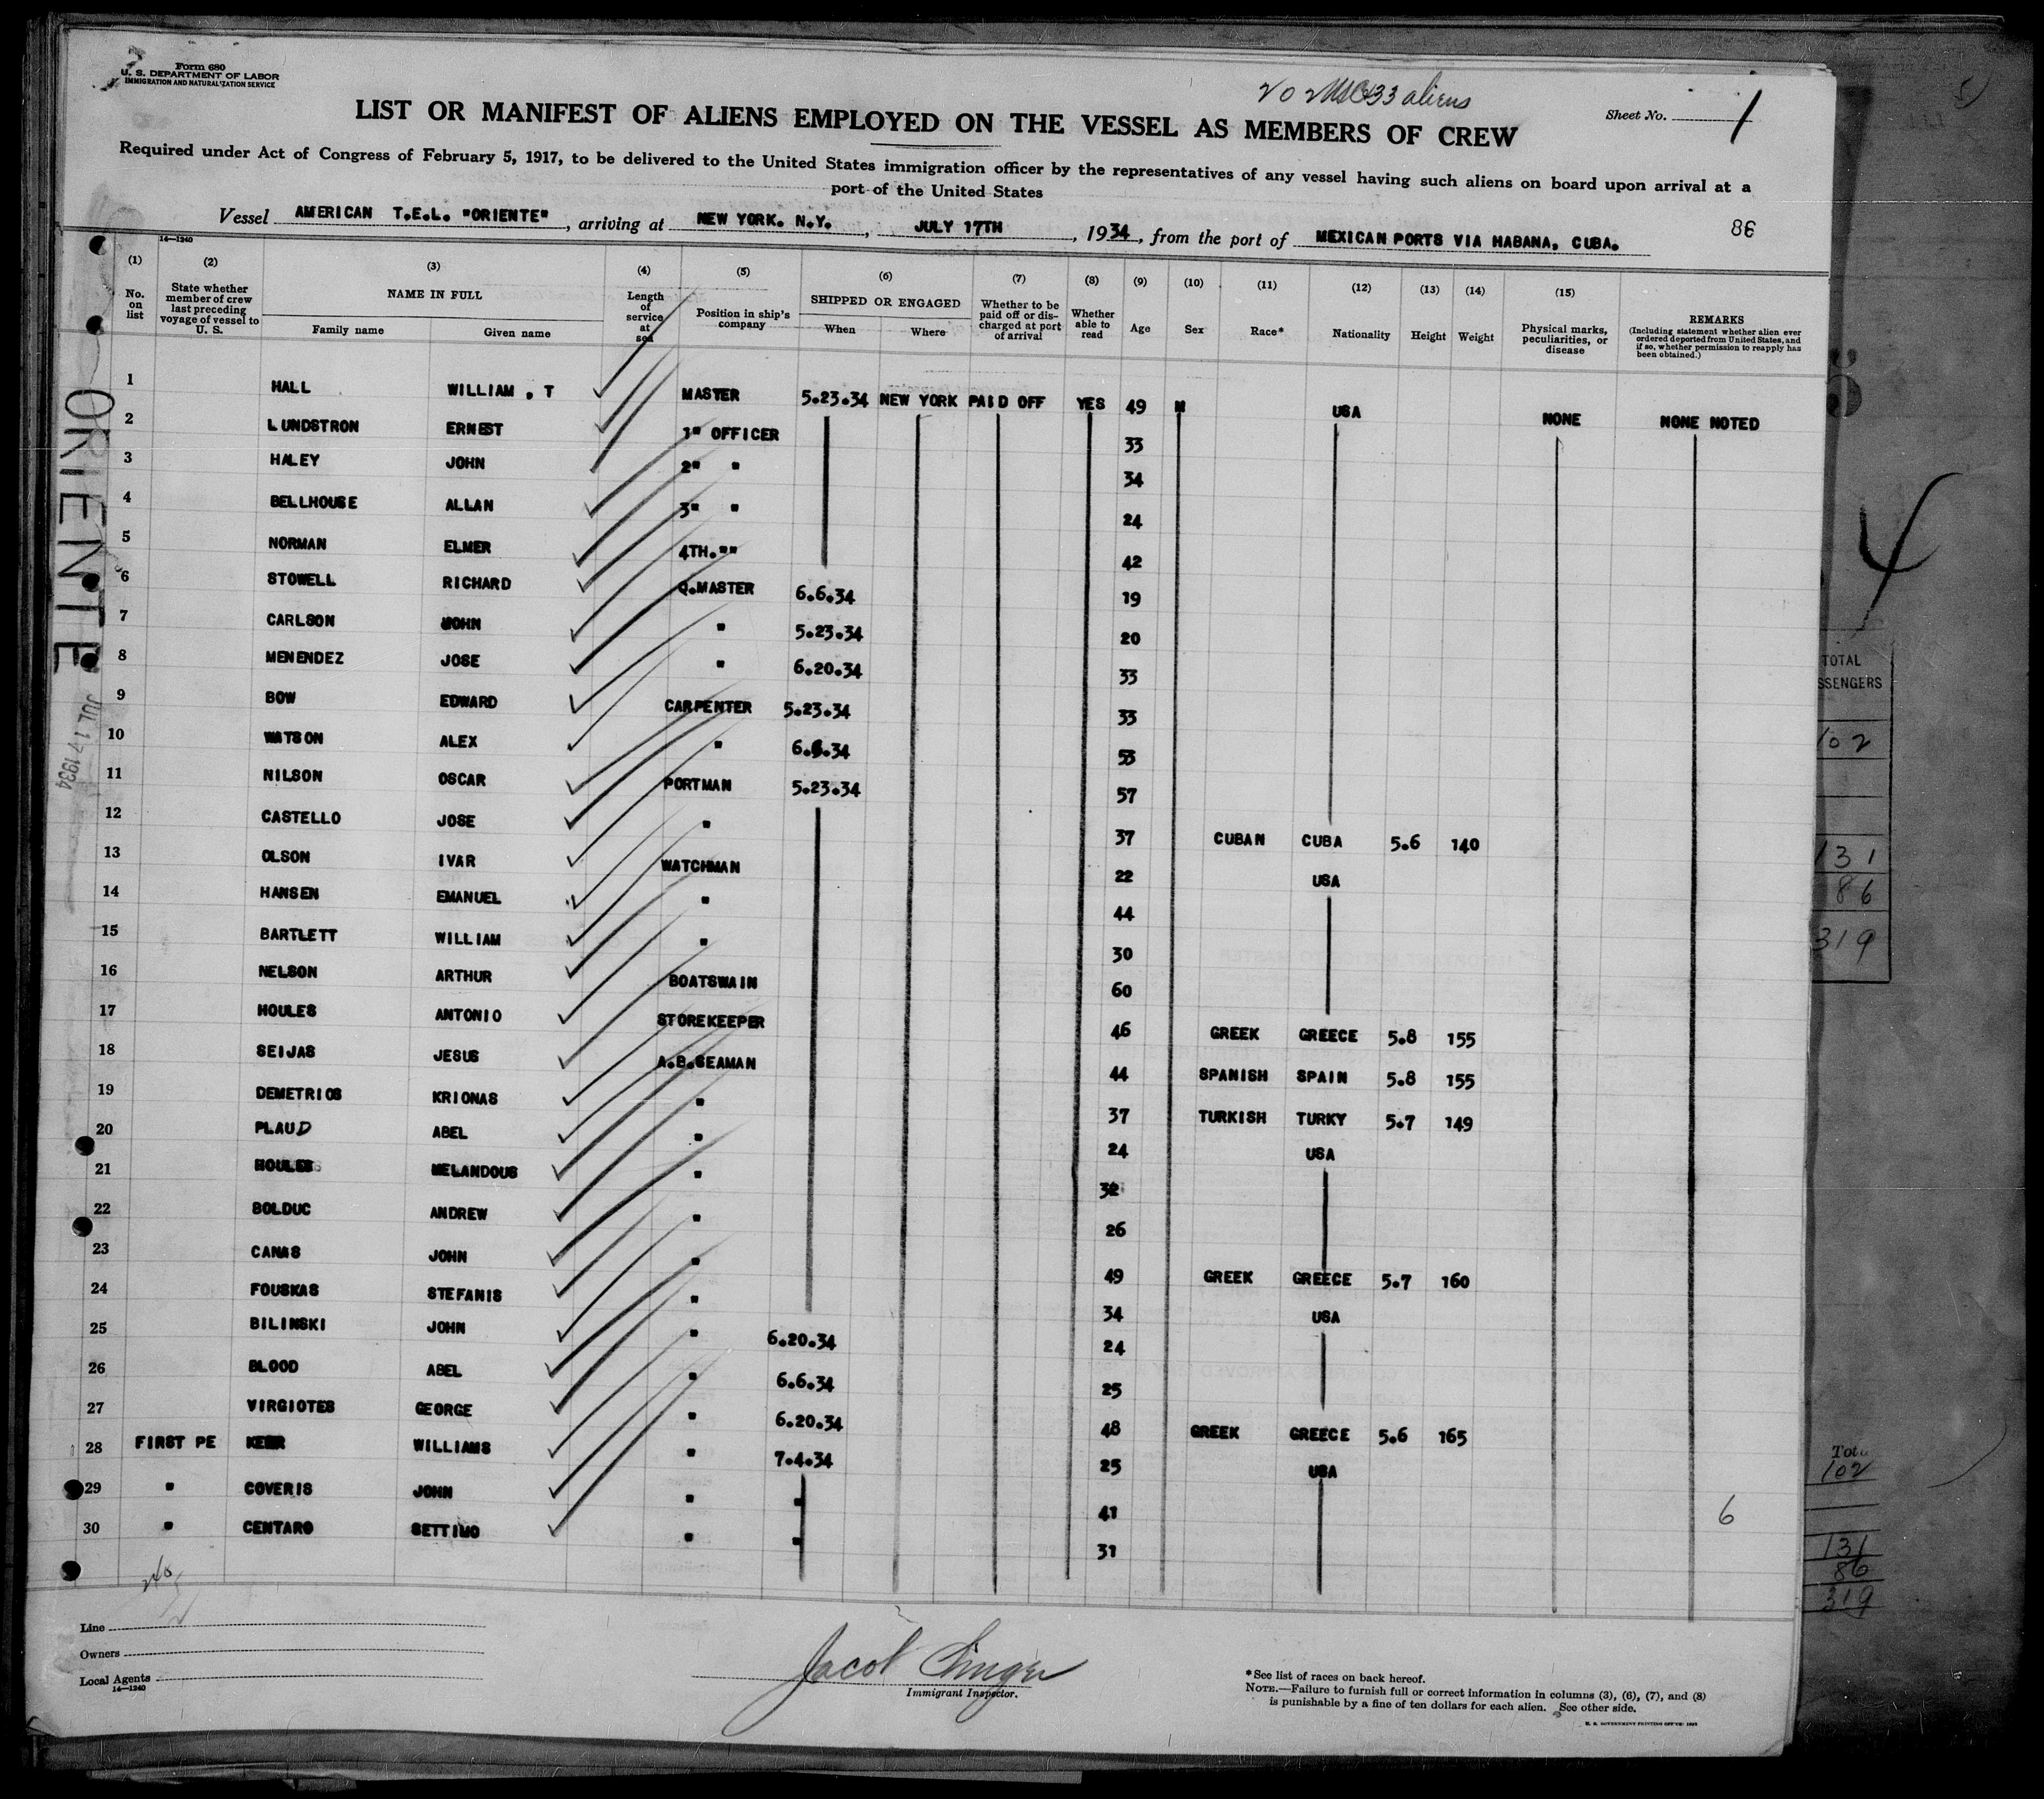 Form 680
U. S. DEPARTMENT OF LABOR
IMMIGRATION AND NATURALIZATION SERVICE
33 aliens
Sheet No. 1
LIST OR MANIFEST OF ALIENS EMPLOYED ON THE VESSEL AS MEMBERS OF CREW
Required under Act of Congress of February 5, 1917, to be delivered to the United States immigration officer by the representatives of any vessel having such aliens on board upon arrival at a
port of the United States
Vessel AMERICAN T.E.L. "ORIENTE", arriving at NEW YORK. N.Y., JULY 17TH, 1934, from the port of MEXICAN PORTS VIA HABANA, CUBA.
86
14—1240
(1) (2) (3) (4) (5) (6) (7) (8) (9) (10) (11) (12) (13) (14) (15)
No. on list | State whether member of crew last preceding voyage of vessel to U. S. | NAME IN FULL | Family name | Given name | Length of service at sea | Position in ship's company | SHIPPED OR ENGAGED | When | Where | Whether to be paid off or discharged at port of arrival | Whether able to read | Age | Sex | Race* | Nationality | Height | Weight | Physical marks, peculiarities, or disease | REMARKS (Including statement whether alien ever ordered deported from United States, and if so, whether permission to reapply has been obtained.)
1 HALL WILLIAM . T MASTER 5.23.34 NEW YORK PAID OFF YES 49 M USA NONE NONE NOTED
2 LUNDSTRON ERNEST 1" OFFICER 33
3 HALEY JOHN 2" " 34
4 BELLHOUSE ALLAN 3" " 24
5 NORMAN ELMER 4TH."" 42
6 STOWELL RICHARD Q.MASTER 6.6.34 19
7 CARLSON JOHN " 5.23.34 20
8 MENENDEZ JOSE " 6.20.34 33
9 BOW EDWARD CARPENTER 5.23.34 33
10 WATSON ALEX " 6.6.34 53
11 NILSON OSCAR PORTMAN 5.23.34 57
12 CASTELLO JOSE " 37 CUBAN CUBA 5.6 140
13 OLSON IVAR WATCHMAN 22 USA
14 HANSEN EMANUEL " 44
15 BARTLETT WILLIAM " 30
16 NELSON ARTHUR BOATSWAIN 60
17 HOULES ANTONIO STOREKEEPER 46 GREEK GREECE 5.8 155
18 SEIJAS JESUS A.B.SEAMAN 44 SPANISH SPAIN 5.8 155
19 DEMETRIOS KRIONAS " 37 TURKISH TURKY 5.7 149
20 PLAUD ABEL " 24 USA
21 HOULES MELANDOUS " 32
22 BOLDUC ANDREW " 26
23 CANAS JOHN " 49 GREEK GREECE 5.7 160
24 FOUSKAS STEFANIS " 34 USA
25 BILINSKI JOHN " 6.20.34 24
26 BLOOD ABEL " 6.6.34 25
27 VIRGIOTES GEORGE " 6.20.34 48 GREEK GREECE 5.6 165
28 FIRST PE KERR WILLIAMS " 7.4.34 25 USA
29 " COVERIS JOHN " " 41
30 " CENTARO SETTIMO " " 31
6
ORIENTE
JUL 17 1934
Line
Owners
Local Agents
14—1240
Jacob
Immigrant Inspector.
*See list of races on back hereof.
NOTE.—Failure to furnish full or correct information in columns (3), (6), (7), and (8)
is punishable by a fine of ten dollars for each alien. See other side.
U. S. GOVERNMENT PRINTING OFFICE
4
TOTAL
SSENGERS
102
131
86
319
102
131
86
319